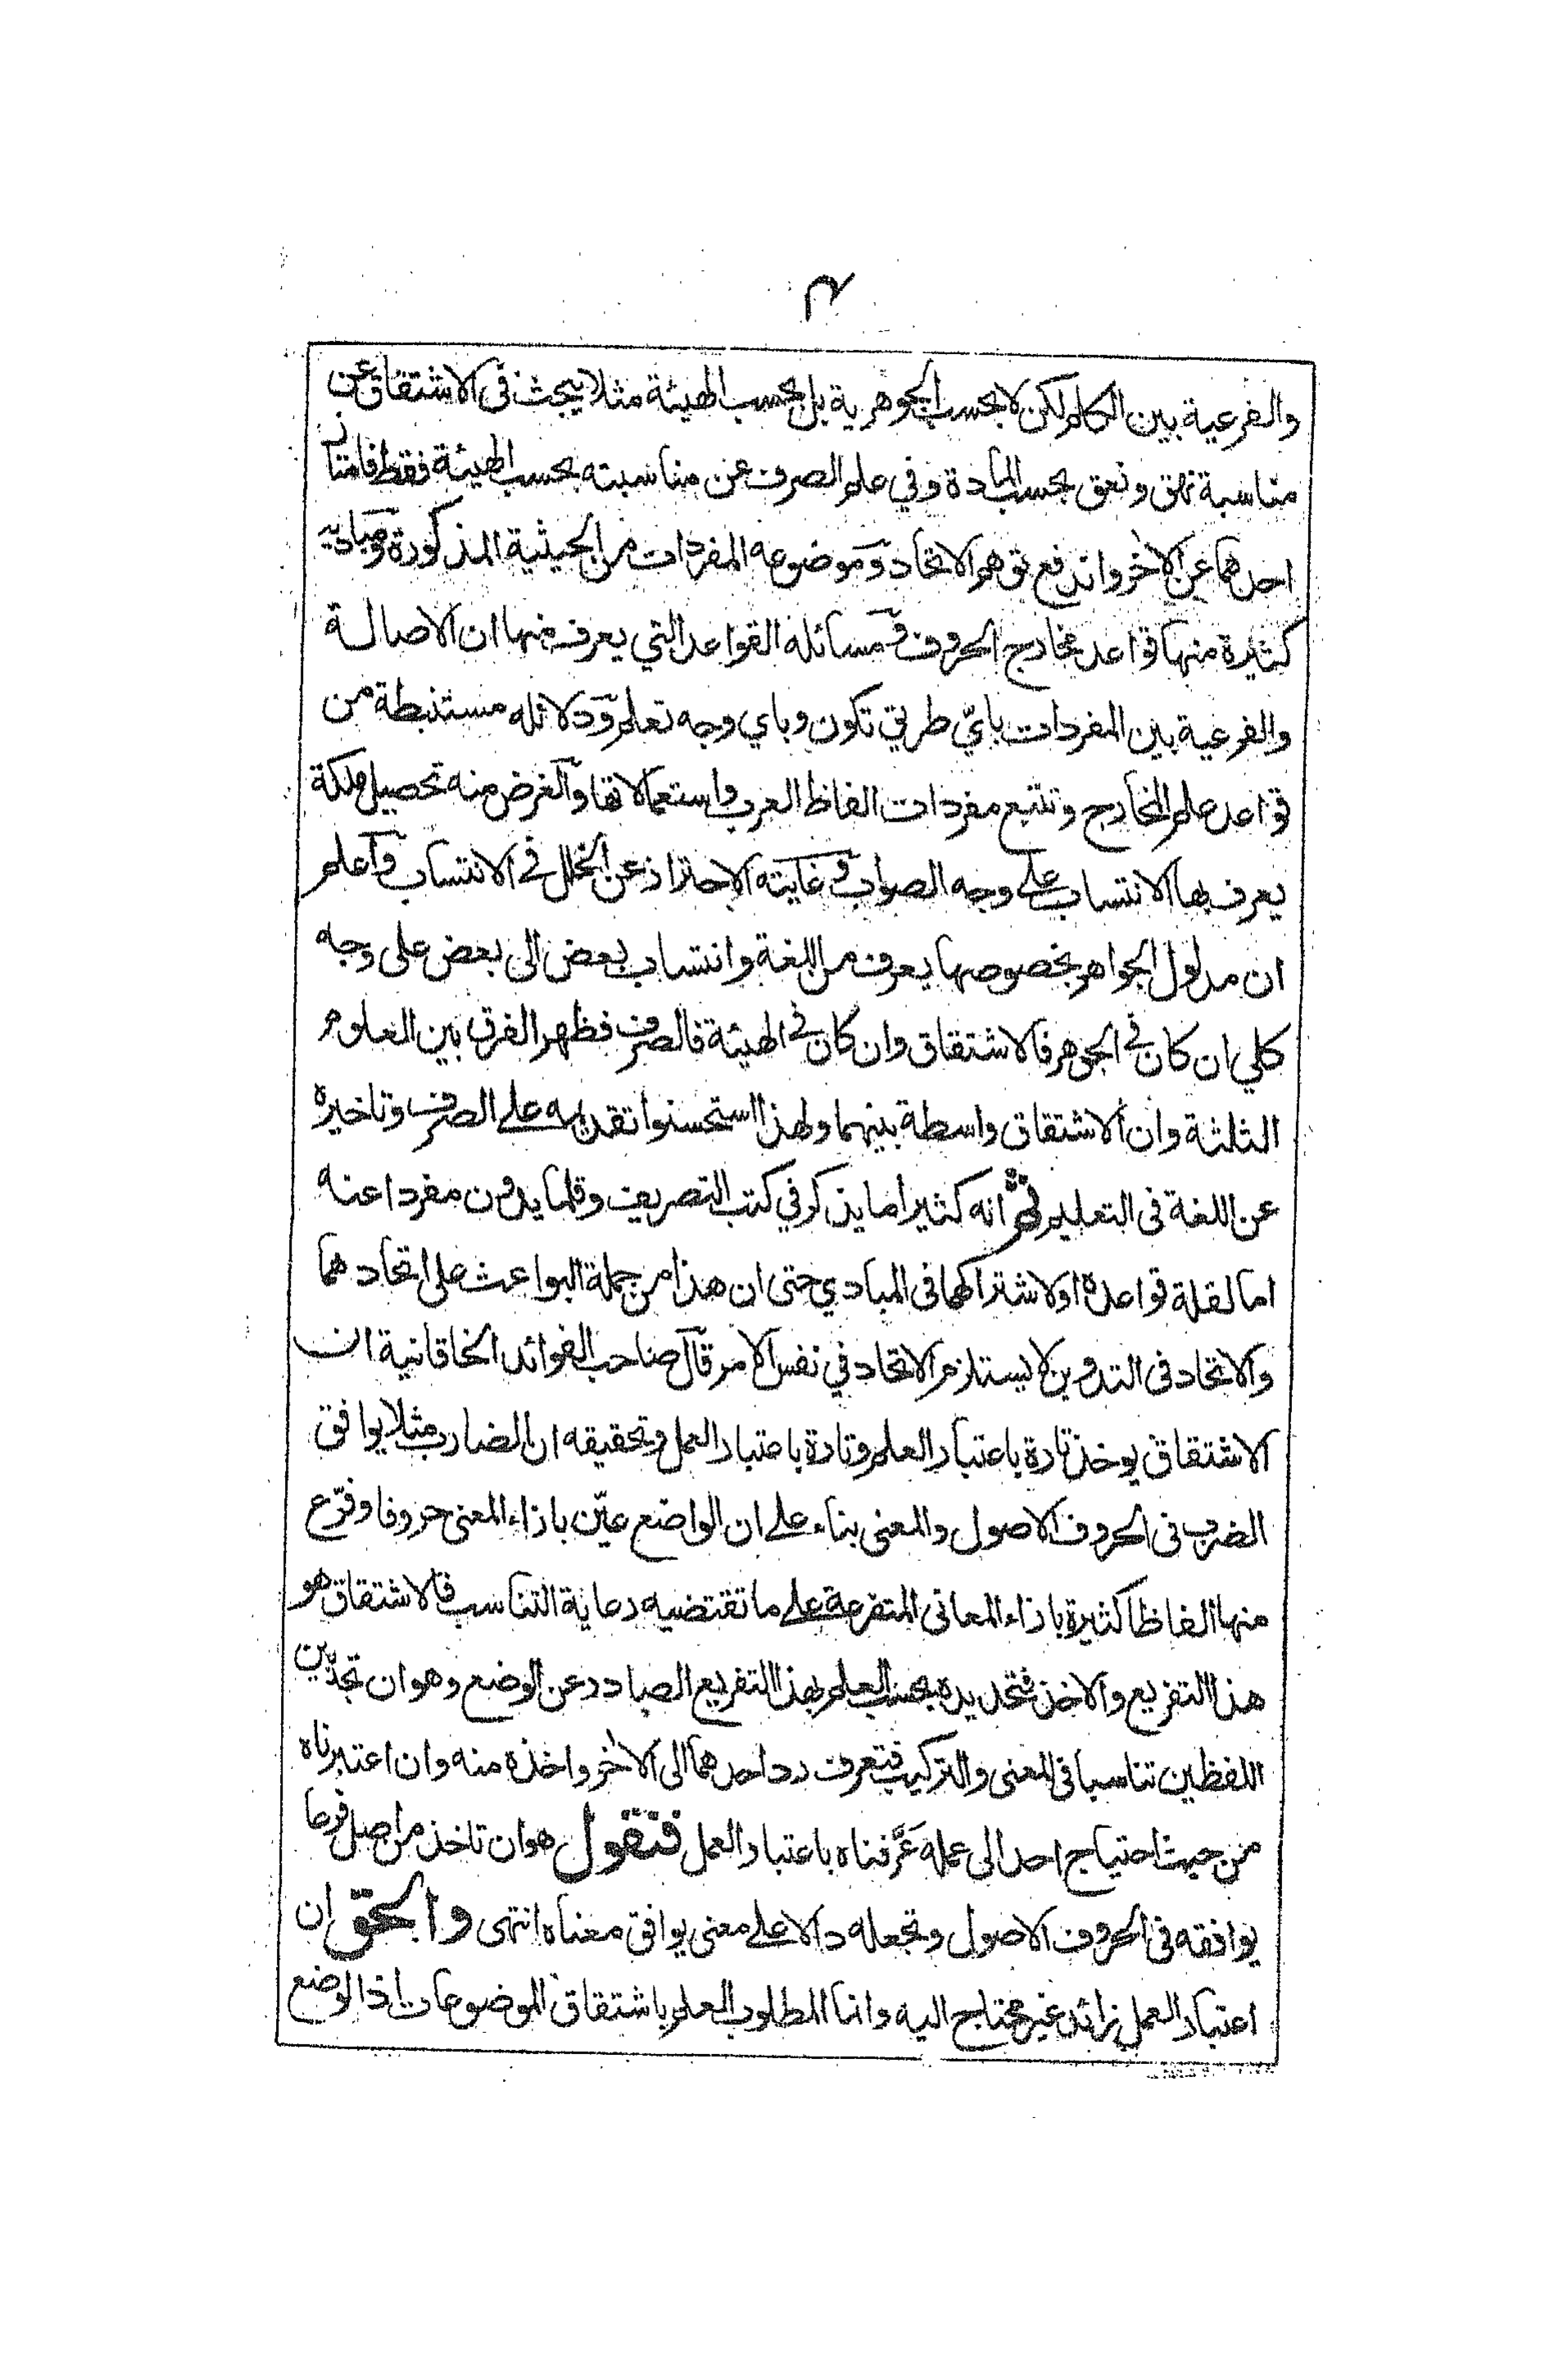 ٣
والفرعية بين الكلم لكن لا بحسب الجوهرية بل بحسب الهيئة مثلا يبحث في الاشتقاق عن
مناسبة نهق ونعق بحسب المادة وفي علم الصرف عن مناسبته بحسب الهيئة فقط فامتاز
احدهما عن الآخر واندفع توهم الاتحاد وموضوعه المفردات من الحيثية المذكورة ومباديه
كثيرة منها قواعد مخارج الحروف ومسائله القواعد التي يعرف منها ان الاصالة
والفرعية بين المفردات بايّ طريق تكون وباي وجه تعلم ودلائله مستنبطة من
قواعد علم المخارج وتتبع مفردات الفاظ العرب واستعمالاتها والغرض منه تحصيل ملكة
يعرف بها الانتساب على وجه الصواب وغايته الاحتراز عن الخلل في الانتساب واعلم
ان مدلول الجواهر بخصوصها يعرف من اللغة وانتساب بعض الى بعض على وجه
كلي ان كان في الجوهر فالاشتقاق وان كان في الهيئة فالصرف فظهر الفرق بين العلوم
الثلثة وان الاشتقاق واسطة بينهما ولهذا استحسنوا تقديمه على الصرف وتاخيره
عن اللغة في التعليم ثم انه كثيرا ما يذكر في كتب التصريف وقلما يدون مفردا عنه
اما لقلة قواعده او لاشتراكهما في المبادي حتى ان هذا من جملة البواعث على اتحادهما
والاتحاد في التدوين لا يستلزم الاتحاد في نفس الامر قال صاحب الفوائد الخاقانية ان
الاشتقاق يوخذ تارة باعتبار العلم وتارة باعتبار العمل وتحقيقه ان الضارب مثلا يوافق
الضرب في الحروف الاصول والمعنى بناء على ان الواضع عيّن بازاء المعنى حروفا وفرّع
منها الفاظا كثيرة بازاء المعاني المتفرعة على ما تقتضيه رعاية التناسب فالاشتقاق هو
هذا التفريع والاخذ فتحديده بحسب العلم بهذا التفريع الصادر عن الوضع وهو ان تجد بين
اللفظين تناسبا في المعنى والتركيب فتعرف رد احدهما الى الآخر واخذه منه وان اعتبرناه
من حيث احتياج احد الى عمله عَرَّفناه باعتبار العمل فنقول هو ان تاخذ من اصل فرعا
يوافقه في الحروف الاصول وتجعله دالا على معنى يوافق معناه انتهى والحق ان
اعتبار العمل زائد غير محتاج اليه وانما المطلوب العلم باشتقاق الموضوعات اذا الوضع